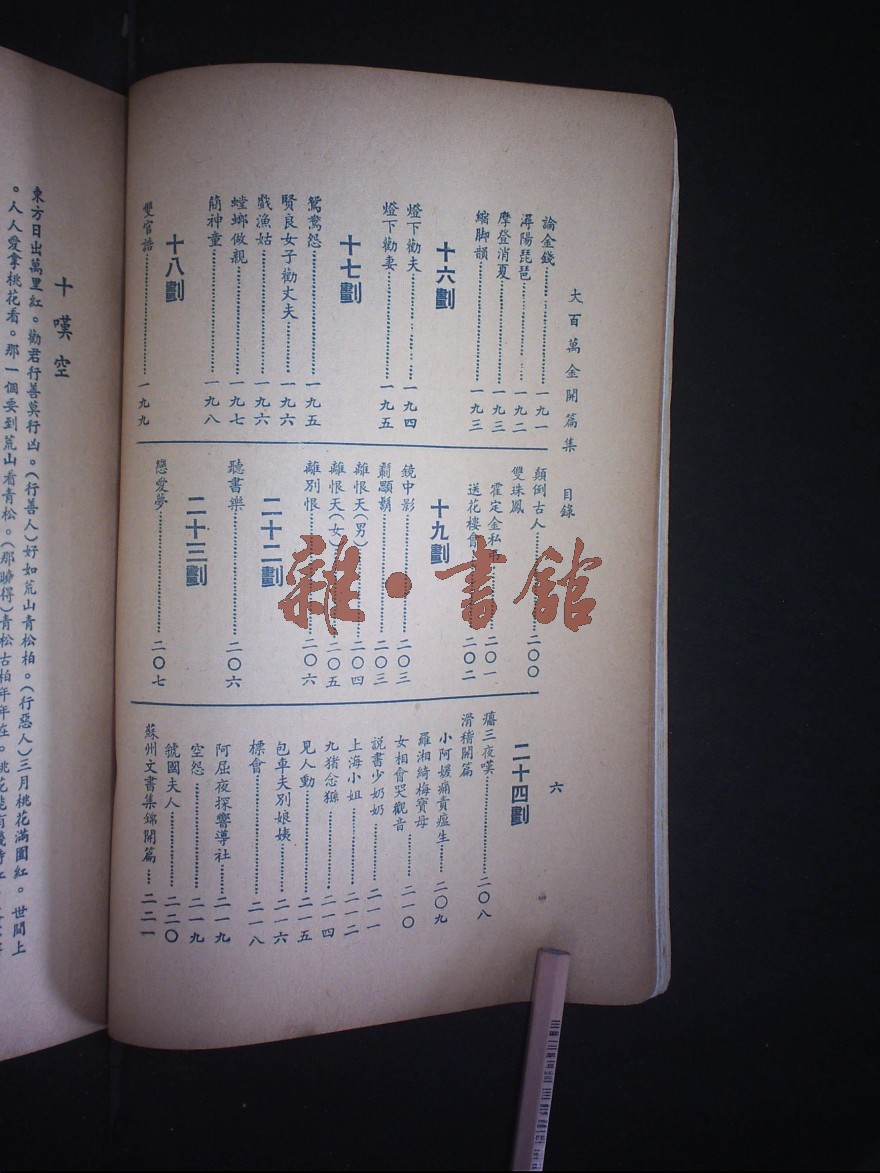 大百萬金開篇集 目錄
六
論金錢 一九一
潯陽琵琶 一九二
摩登消夏 一九三
縮脚韻 一九三
十六劃
燈下勸夫 一九四
燈下勸妻 一九五
十七劃
鴛鴦怨 一九五
賢良女子勸丈夫 一九六
戲漁姑 一九六
螳螂做親 一九七
簡神童 一九八
十八劃
雙官誥 一九九
顛倒古人 二〇〇
雙珠鳳
霍定金私 二〇一
送花樓會 二〇二
十九劃
鏡中影 二〇三
鬍鬚 二〇三
離恨天(男) 二〇四
離恨天(女) 二〇五
離別恨 二〇六
二十二劃
聽書樂 二〇六
二十三劃
戀愛夢 二〇七
二十四劃
癟三夜嘆 二〇八
滑稽開篇
小阿媛痛責瘟生 二〇九
羅湘綺梅寶母
女相會哭觀音 二一〇
說書少奶奶 二一一
上海小姐 二一二
九猪念 二一四
見人動 二一五
包車夫別娘姨 二一六
標會 二一八
阿屈夜探響導社 二一九
空怨 二一九
虢國夫人 二二〇
蘇州文書集錦開篇 二二一
雜·書館
十嘆空
東方日出萬里紅。勸君行善莫行凶。(行善人)好如荒山青松柏。(行惡人)三月桃花滿園紅。世間上
。人人愛拿桃花看。那一個要到荒山看青松。(那曉得)青松古柏年年在。桃花能有幾時紅